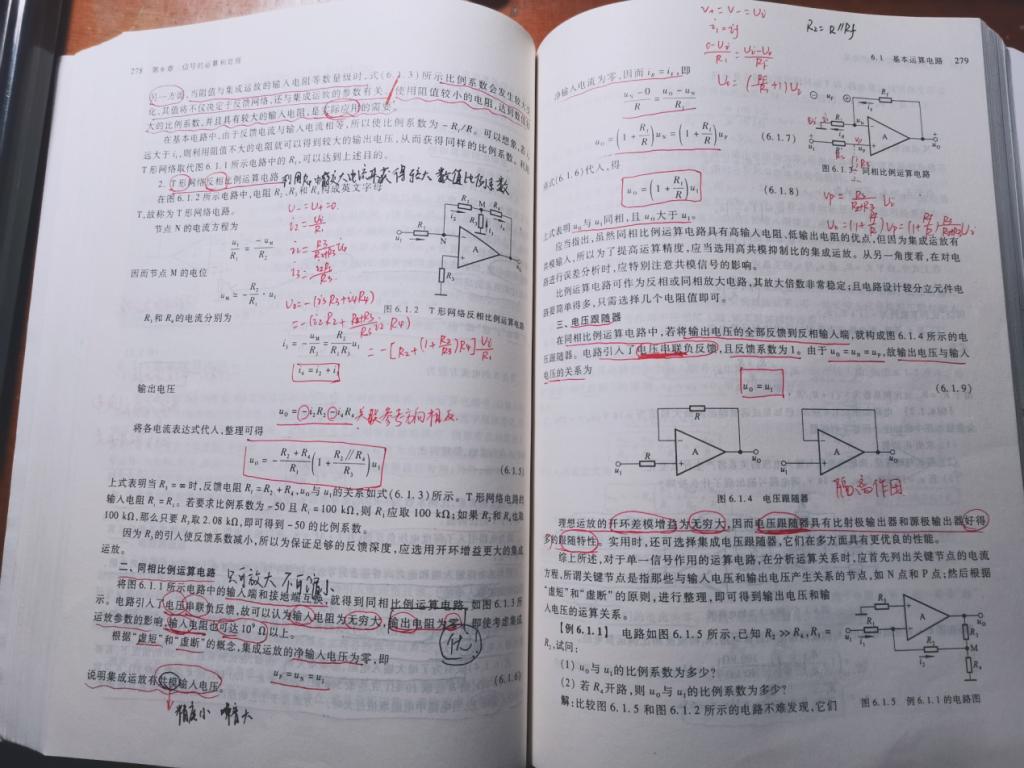 278 第6章 信号的运算和处理
另一方面,当阻值与集成运放的输入电阻等数量级时,式(6.1.3)所示比例系数会发生较大变
化,其值将不仅决定于反馈网络,还与集成运放的参数有关。使用阻值较小的电阻,达到数值较
大的比例系数,并且具有较大的输入电阻,是实际应用的需要。
在基本电路中,由于反馈电流与输入电流相等,所以使比例系数为 −Rf/R。可以想象,若
远大于 i₁,则利用阻值不大的电阻就可以得到较大的输出电压,从而获得同样的比例系数。利用
T形网络取代图6.1.1所示电路中的 Rf,可以达到上述目的。
2. T形网络反相比例运算电路
数值比例系数
在图6.1.2所示电路中,电阻 R₂、R₃和R₄构成英文字母
T,故称为T形网络电路。
U₋=U₊=0.
节点N的电流方程为
u₁/R₁ = −u_M/R₂
因而节点M的电位
u_M = −R₂/R₁ · u₁
图6.1.2 T形网络反相比例运算电路
R₃和R₄的电流分别为
i₃ = −u_M/R₃ = R₂/(R₁R₃) u₁
i₄ = i₂ + i₃
输出电压
u_O = −i₂R₂ − i₄R₄
关联参考方向相反
将各电流表达式代入,整理可得
u_O = −(R₂+R₄)/R₁ (1 + (R₂∥R₄)/R₃) u₁ (6.1.5)
上式表明当 R₃=∞ 时,反馈电阻 Rf=R₂+R₄,u_O与u₁的关系如式(6.1.3)所示。T形网络电路的
输入电阻 Ri=R₁。若要求比例系数为−50且Ri=100 kΩ,则 R₁应取100 kΩ;如果R₂和R₄也取
100 kΩ,那么只要R₃取2.08 kΩ,即可得到−50的比例系数。
因为R₃的引入使反馈系数减小,所以为保证足够的反馈深度,应选用开环增益更大的集成
运放。
二、同相比例运算电路 只可放大 不可缩小
将图6.1.1所示电路中的输入端和接地端互换,就得到同相比例运算电路,如图6.1.3所
示。电路引入了电压串联负反馈,故可以认为输入电阻为无穷大,输出电阻为零。即使考虑集成
运放参数的影响,输入电阻也可达10⁹ Ω以上。
优
根据“虚短”和“虚断”的概念,集成运放的净输入电压为零,即
u_P = u_N = u₁ (6.1.6)
说明集成运放有共模输入电压。
精度小 噪音大
6.1 基本运算电路 279
R₂=R∥Rf
净输入电流为零,因而 i_R=i_F,即
(u_N−0)/R = (u_O−u_N)/Rf
u_O = (1+Rf/R)u_N = (1+Rf/R)u_P (6.1.7)
图6.1.3 同相比例运算电路
将式(6.1.6)代入,得
u_O = (1+Rf/R)u₁ (6.1.8)
上式表明 u_O与u₁同相,且u_O大于u₁。
应当指出,虽然同相比例运算电路具有高输入电阻、低输出电阻的优点,但因为集成运放有
共模输入,所以为了提高运算精度,应当选用高共模抑制比的集成运放。从另一角度看,在对电
路进行误差分析时,应特别注意共模信号的影响。
比例运算电路可作为反相或同相放大电路,其放大倍数非常稳定;且电路设计较分立元件电
路要简单得多,只需选择几个电阻值即可。
三、电压跟随器
在同相比例运算电路中,若将输出电压的全部反馈到反相输入端,就构成图6.1.4所示的电
压跟随器。电路引入了电压串联负反馈,且反馈系数为1。由于 u_O=u_N=u_P,故输出电压与输入
电压的关系为
u_O = u₁ (6.1.9)
图6.1.4 电压跟随器
隔离作用
理想运放的开环差模增益为无穷大,因而电压跟随器具有比射极输出器和源极输出器好得
多的跟随特性。实用时,还可选择集成电压跟随器,它们在多方面具有更优良的性能。
综上所述,对于单一信号作用的运算电路,在分析运算关系时,应首先列出关键节点的电流
方程,所谓关键节点是指那些与输入电压和输出电压产生关系的节点,如N点和P点;然后根据
“虚短”和“虚断”的原则,进行整理,即可得到输出电压和输
入电压的运算关系。
【例6.1.1】 电路如图6.1.5所示,已知 R₂≫R₄,R₁=
R₂,试问:
(1) u_O与u₁的比例系数为多少?
(2) 若R₄开路,则u_O与u₁的比例系数为多少?
解:比较图6.1.5和图6.1.2所示的电路不难发现,它们
图6.1.5 例6.1.1的电路图